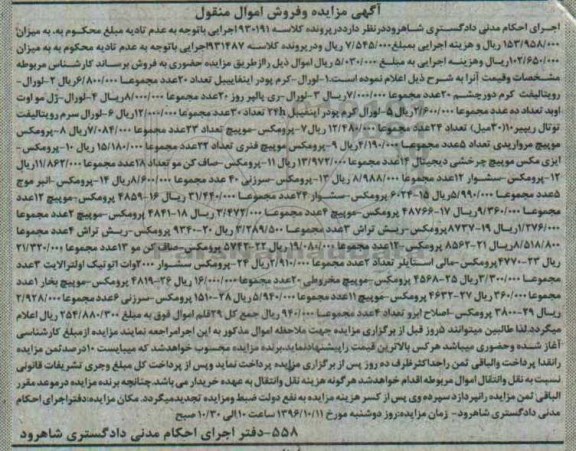 آگهی مزایده وفروش اموال منقول
اجرای احکام مدنی دادگستری شاهروددرنظر دارددرپرونده کلاسه ۹۳۰۱۹۱اجرایی باتوجه به عدم تادیه مبلغ محکوم به، به میزان
۱۵۳/۹۵۸/۰۰۰ ریال و هزینه اجرایی بمبلغ۷/۵۴۵/۰۰۰ ریال ودرپرونده کلاسه ۹۳۱۲۸۷اجرایی باتوجه به عدم تادیه محکوم به به میزان
۱۰۳/۶۵۰/۰۰۰ریال وهزینه اجرایی به مبلغ ۵/۰۳۰/۰۰۰ ریال اموال ذیل راازطریق مزایده حضوری به فروش برساند کارشناس مربوطه
مشخصات وقیمت آنرا به شرح ذیل اعلام نموده است:۱-لورال-کرم پودر اینفاییبل تعداد ۲۰عدد مجموعا ۶/۸۰۰/۰۰۰ریال ۲-لورال-
رویتالیفت کرم دورچشم ۲۰عدد مجموعا ۷/۰۰۰/۰۰۰ریال ۳-لورال-ری پالپر روز ۲۰عدد مجموعا ۸/۰۰۰/۰۰۰ریال ۴-لورال-ژل مو اوت
اوید تعداد ده عدد مجموعا ۲/۶۰۰/۰۰۰ریال ۵-لورال کرم پودر اینفییبل ۲۴h تعداد ۳۰عدد مجموعا ۱۲/۰۰۰/۰۰۰ریال ۶-لورال سرم رویتالیفت
توتال ریپیر۱۰(۳۰میل) تعداد ۲۴عدد مجموعا ۱۲/۴۸۰/۰۰۰ ریال ۷-پرومکس-موپیچ تعداد ۲۳عدد مجموعا ۷/۰۸۴/۰۰۰ ریال ۸-پرومکس
موپیچ مرواریدی تعداد ۵عدد مجموعا ۴/۱۹۰/۰۰۰ریال ۹-پرومکس موپیچ فنری تعداد ۲۲عدد مجموعا ۱۵/۱۸۰/۰۰۰ ریال ۱۰-پرومکس-
ایزی مکس موپیچ چرخشی دیجیتال ۱۴عدد مجموعا ۱۳/۹۷۲/۰۰۰ ریال ۱۱-پرومکس-صاف کن مو تعداد ۱۸عدد مجموعا ۱۱/۸۶۲/۰۰۰ریال
۱۲-پرومکس-سشوار ۱۲عدد مجموعا ۸/۹۸۸/۰۰۰ ریال ۱۳-پرومکس-سرزنی ۴۰ عدد مجموعا ۸/۶۰۰/۰۰۰ریال ۱۴-پرومکس-انبر موج
۵عدد مجموعا ۵/۹۹۰/۰۰۰ریال ۱۵-۶۰۲۴ پرومکس-سشوار ۲۴عدد مجموعا ۳۱/۴۴۰/۰۰۰ ریال ۱۶-۴۸۵۹ پرومکس-موپیچ ۱۲عدد
مجموعا ۹/۳۶۰/۰۰۰ریال ۱۷-۴۸۷۶۶ پرومکس-موپیچ ۴عدد مجموعا ۲/۴۷۲/۰۰۰ ریال ۱۸-۴۸۴۱ پرومکس-موپیچ ۲عدد مجموعا
۱/۲۷۶/۰۰۰ریال ۱۹-۸۷۳۷ پرومکس-ریش تراش ۳عدد مجموعا ۳/۲۸۹/۵۰۰ ریال ۲۰-۹۳۴۰ پرومکس-ریش تراش ۴عدد مجموعا
۸/۵۱۸/۸۰۰ریال ۲۱-۸۵۶۲ پرومکس-۱۲عدد مجموعا ۱۹/۰۸۰/۰۰۰ ریال ۲۲-۵۷۴۲ پرومکس-صاف کن مو ۱۳عدد مجموعا ۲۱/۳۲۰/۰۰۰
ریال ۲۳-۴۷۷۰پرومکس-مالی استایلر تعداد ۲عدد مجموعا ۲/۹۱۰/۰۰۰ریال ۲۴-پرومکس سشوار ۲۰۰۰وات اتونیک اولترالایت ۳عدد
مجموعا ۳/۳۰۰/۰۰۰ریال ۲۵-۴۵۶۸ پرومکس-موپیچ مخروطی ۲۰عدد مجموعا ۱۶/۰۰۰/۰۰۰ ریال ۲۶-۴۸۱۹ پرومکس-موپیچ بخار ۱عدد
مجموعا ۳۶۰/۰۰۰ ریال ۲۷-۴۶۳۲ پرومکس-موپیچ ۱۱عدد مجموعا ۵/۹۴۰/۰۰۰ ریال ۲۸-۱۵۱ پرومکس-سرزنی ۶عدد مجموعا ۲/۹۲۸/۰۰۰
ریال ۲۹-۳۸۰۰ پرومکس-اصلاح ابرو تعداد ۴عدد مجموعا ۹۴۰/۰۰۰ ریال جمع کل ۲۹قلم اموال فوق به مبلغ ۲۵۴/۸۸۰/۳۰۰ ریال اعلام
میگرددلذا طالبین میتوانند ۵روز قبل از برگزاری مزایده جهت ملاحظه اموال مذکور به این اجرامراجعه نمایند مزایده ازمبلغ کارشناسی
آغاز شده وحضوری میباشد هرکس بالاترین قیمت راپیشنهادنماید،برنده مزایده محسوب خواهدشد که میبایست ۱۰درصدثمن مزایده
رانقدا پرداخت والباقی ثمن راحداکثرظرف ده روز پس از برگزاری مزایده پرداخت نماید وپس از پرداخت کل مبلغ وجری تشریفات قانونی
نسبت به نقل وانتقال اموال مربوطه اقدام خواهدشد هرگونه هزینه نقل وانتقال به عهده خریدار می باشد.چنانچه برنده مزایده درموعد مقرر
الباقی ثمن مزایده رانپردازد سپرده وی پس از کسر هزینه مزایده به نفع دولت ضبط ومزایده تجدیدمیگردد. مکان مزایده:دفتراجرای احکام
مدنی دادگستری شاهرود- زمان مزایده:روز دوشنبه مورخ ۱۳۹۶/۱۰/۱۱ ساعت ۱۰الی ۱۰/۳۰ صبح
۵۵۸-دفتر اجرای احکام مدنی دادگستری شاهرود